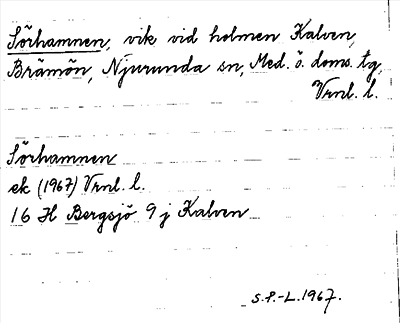 Sörhamnen, vik vid holmen Kalven,
Brämön, Njurunda sn, Med. ö. doms. tg,
Vrnl. l.
Sörhamnen
ek (1967) Vrnl. l.
16 H Bergsjö 9 j Kalven
S.P.-L. 1967.